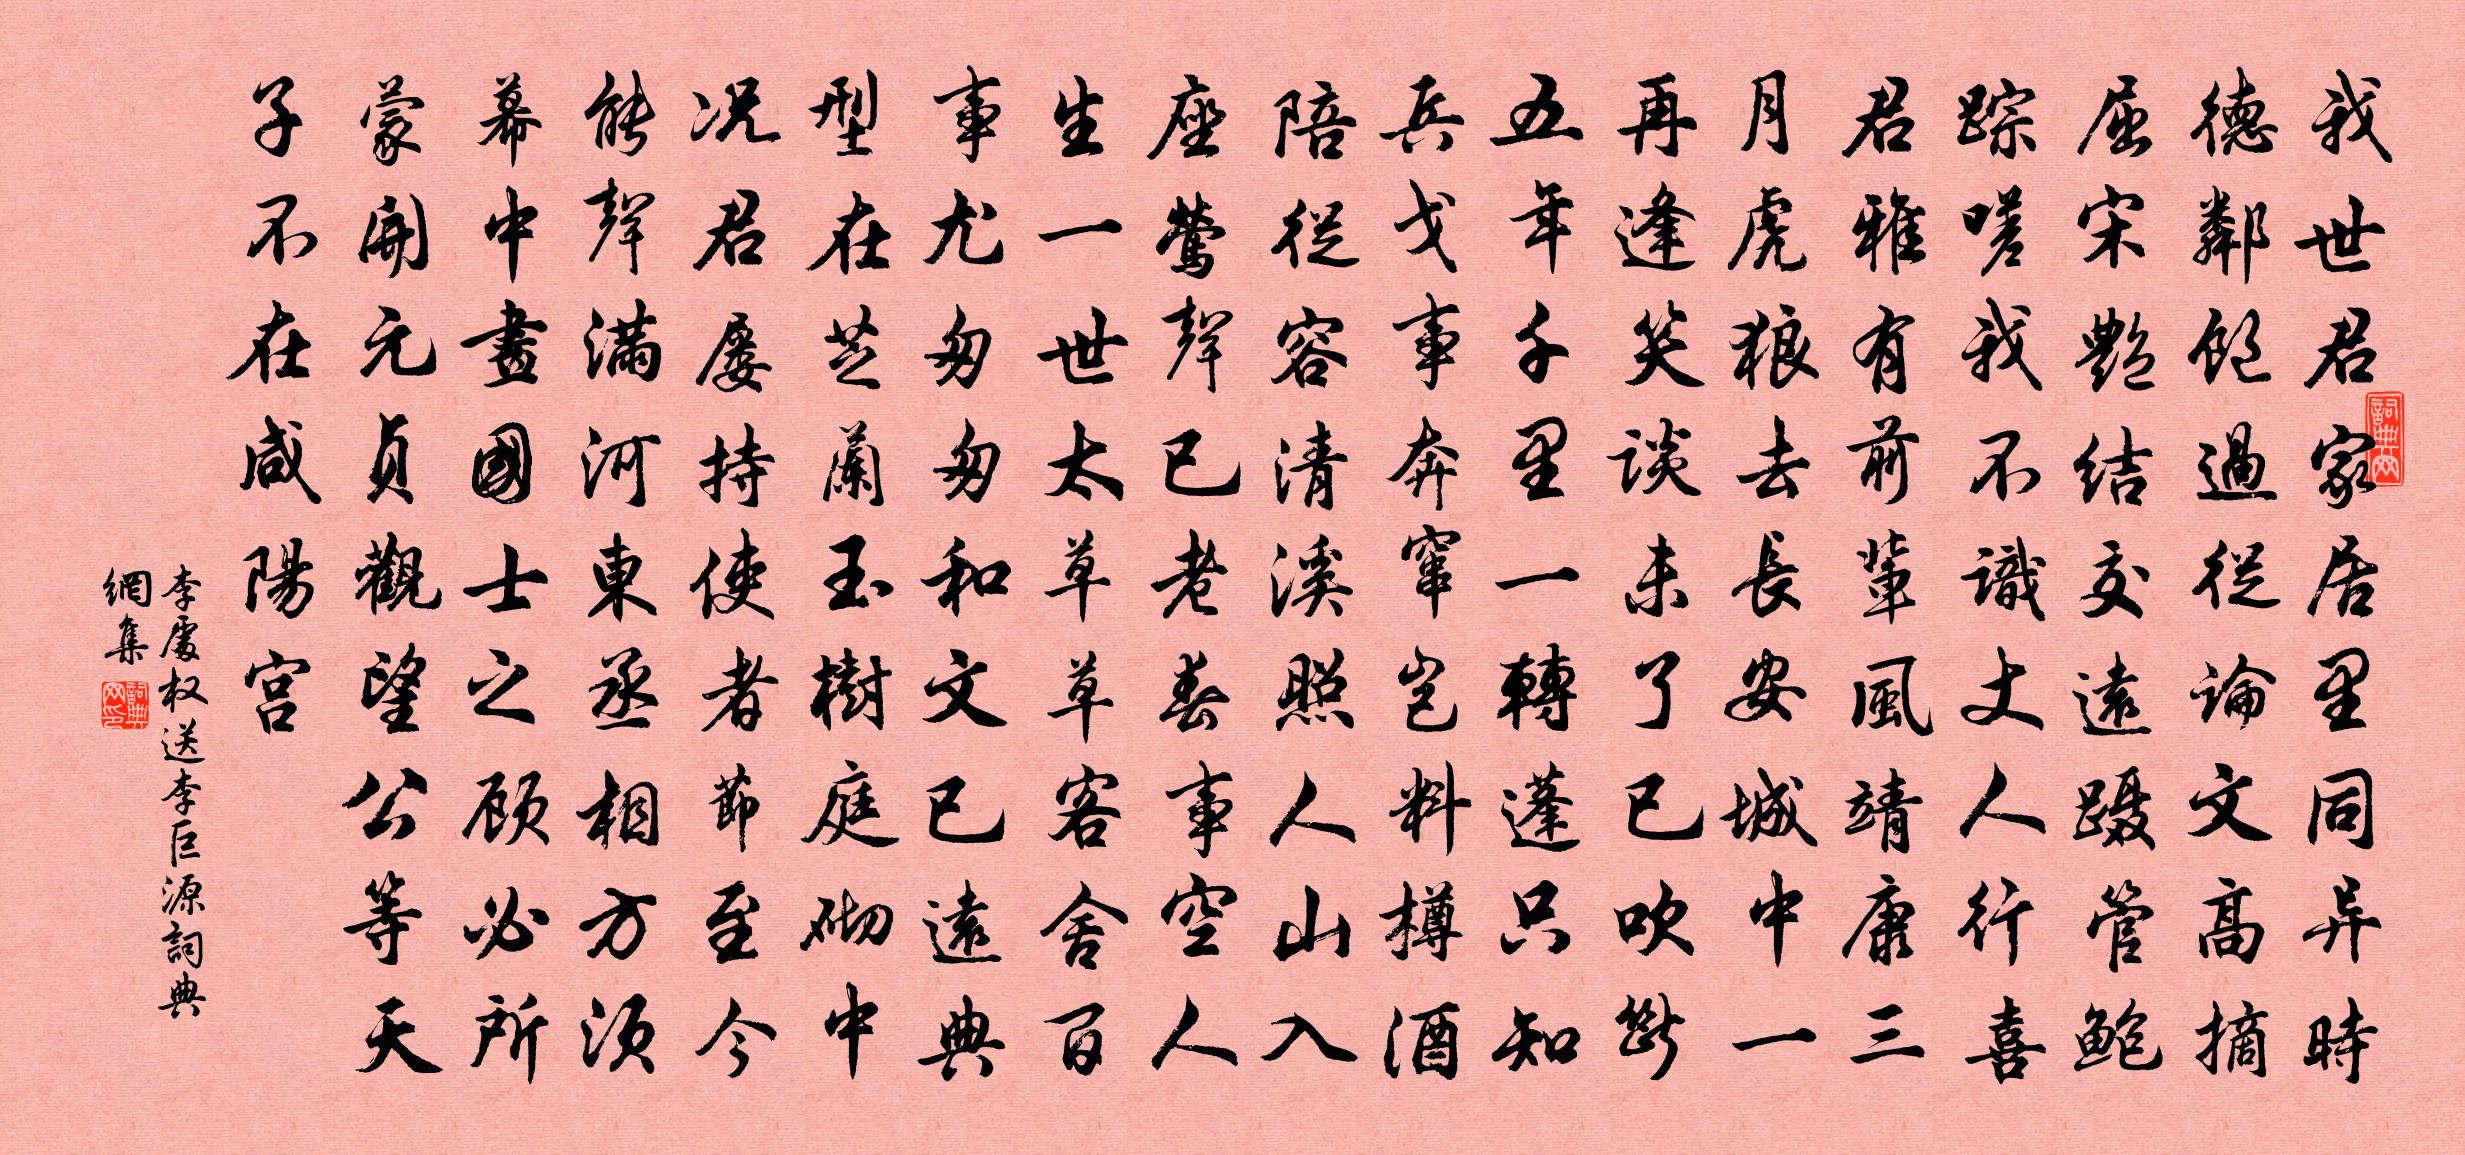 我世君家居里同异時
德鄰飽過從論文高摘
屈宋艷結交遠躡管鮑
踪嗟我不識丈人行喜
君雅有前輩風靖康三
月虎狼去長安城中一
再逢笑談未了已吹斷
五年千里一轉蓬只知
兵戈事奔竄豈料樽酒
陪從容清溪照人山入
座鶯聲已老春事空人
生一世太草草客舍百
事尤匆匆和文已遠典
型在芝蘭玉樹庭砌中
況君屢持使者節至今
能聲滿河東丞相方須
幕中畫國士之顧必所
蒙開元貞觀望公等天
子不在咸陽宫
李處权送李巨源詞典
網集
詞典网
詞典网印